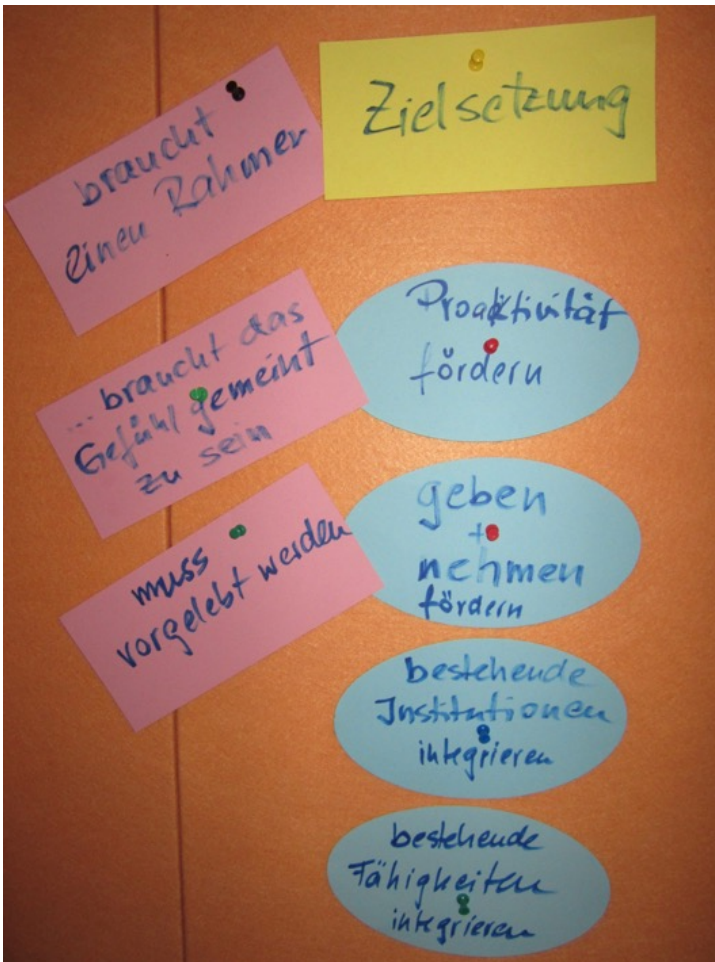 braucht
einen Rahmen
Zielsetzung
... braucht das
Gefühl gemeint
zu sein
muss
vorgelebt werden
Proaktivität
fördern
geben
+
nehmen
fördern
bestehende
Institutionen
integrieren
bestehende
Fähigkeiten
integrieren